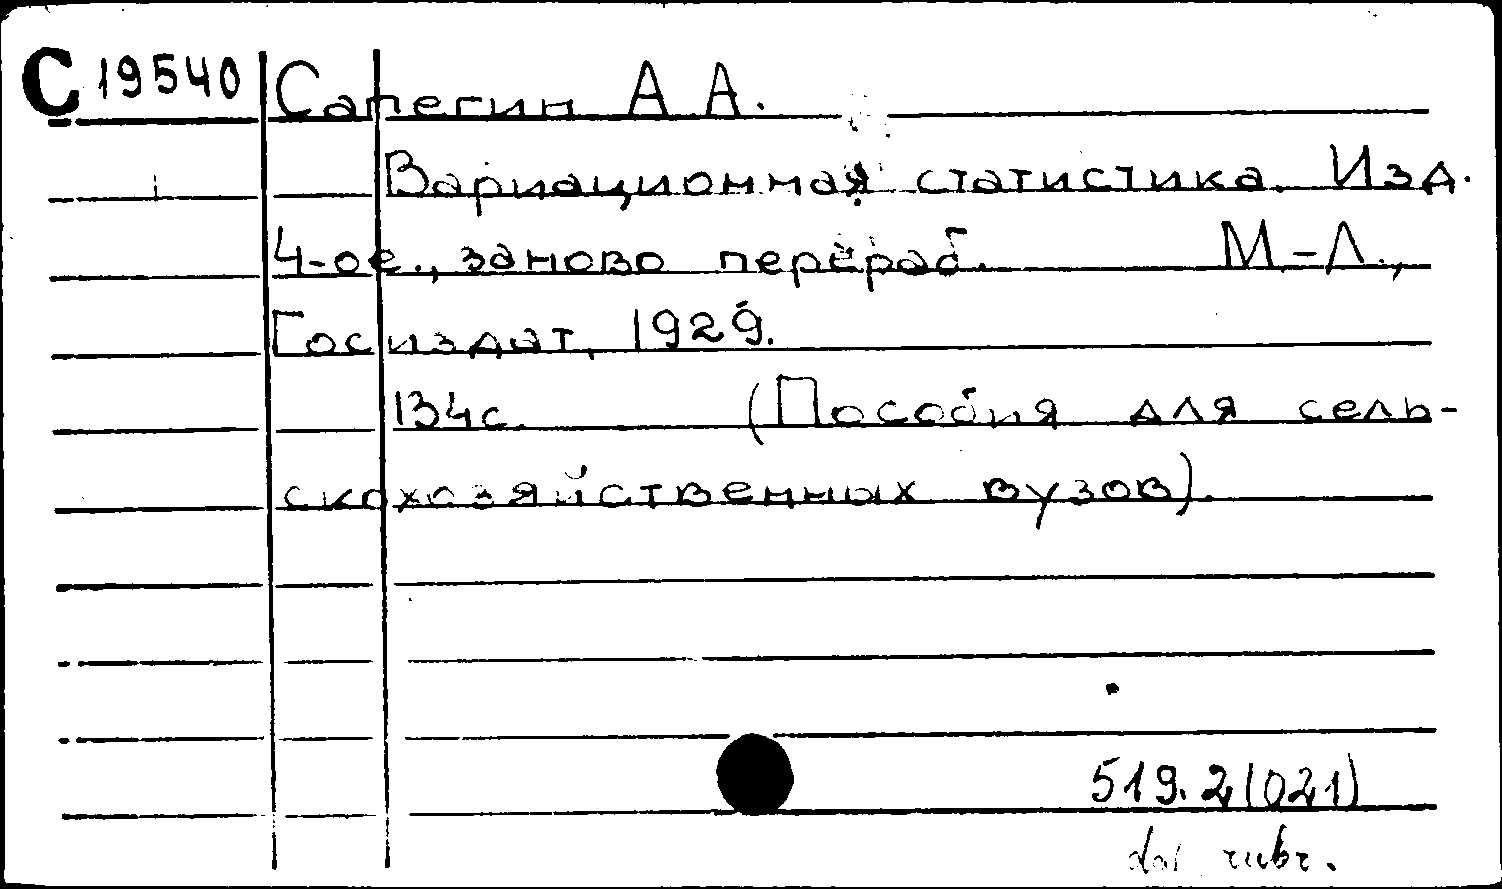 С 19540 Сапегин А А.
Вариационная статистика. Изд.
4-ое., заново перераб. М-Л.,
Госиздат, 1929.
134с. (Пособия для сель-
скохозяйственных вузов).
519.2(021)
rubr.